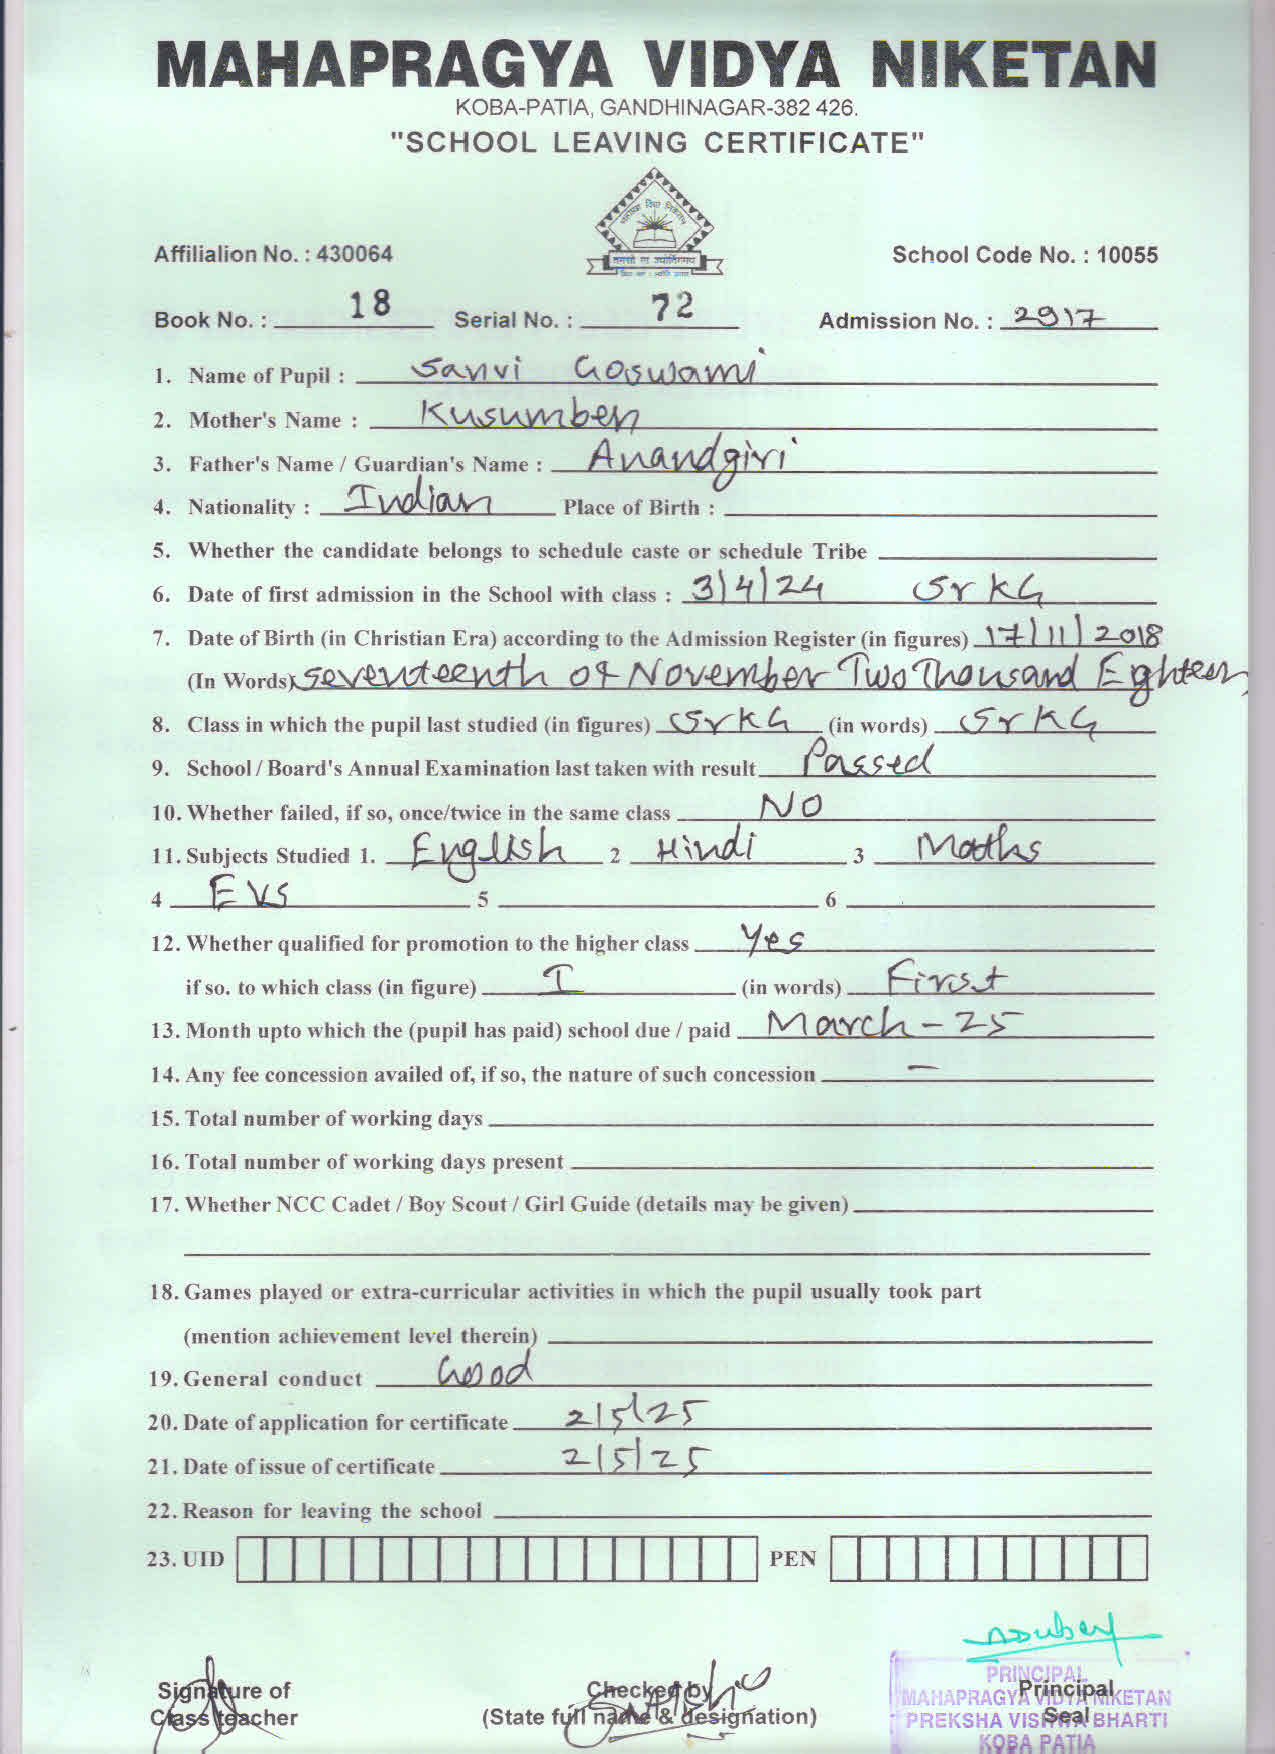 MAHAPRAGYA VIDYA NIKETAN
KOBA-PATIA, GANDHINAGAR-382 426.
"SCHOOL LEAVING CERTIFICATE"
Affilialion No. : 430064 School Code No. : 10055
Book No. : 18 Serial No. : 72 Admission No. : 2917
1. Name of Pupil : Sanvi Goswami
2. Mother's Name : Kusumben
3. Father's Name / Guardian's Name : Anandgiri
4. Nationality : Indian Place of Birth :
5. Whether the candidate belongs to schedule caste or schedule Tribe
6. Date of first admission in the School with class : 3/4/24 Sr KG
7. Date of Birth (in Christian Era) according to the Admission Register (in figures) 17/11/2018
(In Words) Seventeenth of November Two Thousand Eighteen
8. Class in which the pupil last studied (in figures) Sr KG (in words) Sr KG
9. School / Board's Annual Examination last taken with result Passed
10. Whether failed, if so, once/twice in the same class NO
11. Subjects Studied 1. English 2 Hindi 3 Maths
4 EVS 5 6
12. Whether qualified for promotion to the higher class Yes
if so. to which class (in figure) I (in words) First
13. Month upto which the (pupil has paid) school due / paid March - 25
14. Any fee concession availed of, if so, the nature of such concession —
15. Total number of working days
16. Total number of working days present
17. Whether NCC Cadet / Boy Scout / Girl Guide (details may be given)
18. Games played or extra-curricular activities in which the pupil usually took part
(mention achievement level therein)
19. General conduct Good
20. Date of application for certificate 2/5/25
21. Date of issue of certificate 2/5/25
22. Reason for leaving the school
23. UID PEN
Signature of Checked by Principal
Class teacher (State full name & designation) Seal
PRINCIPAL
MAHAPRAGYA VIDYA NIKETAN
PREKSHA VISHWA BHARTI
KOBA PATIA